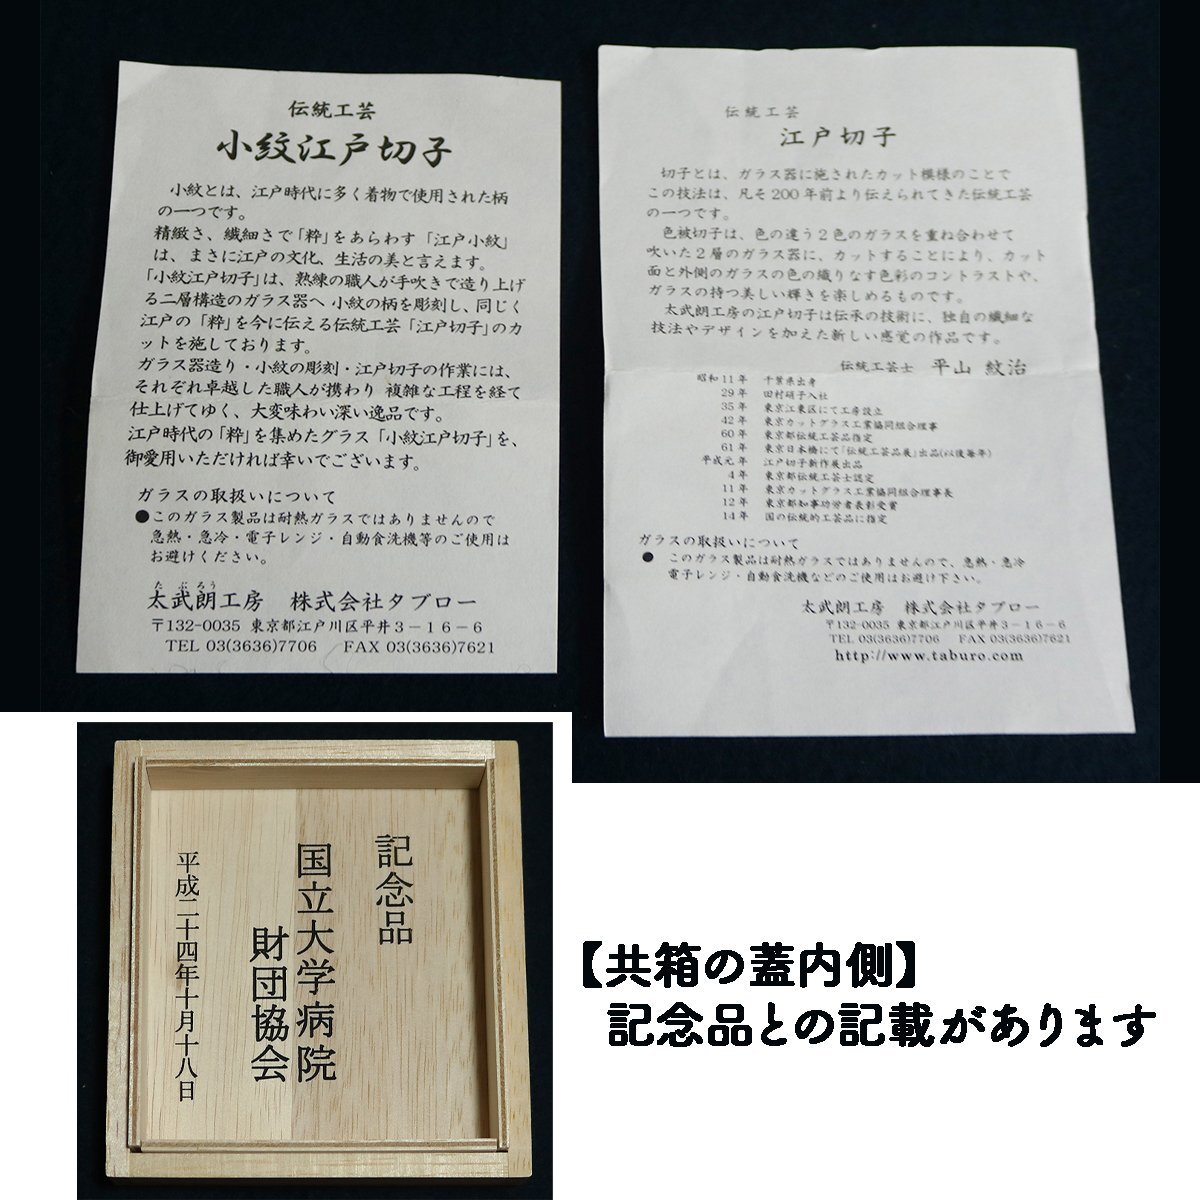 伝統工芸
小紋江戸切子
小紋とは、江戸時代に多く着物で使用された柄
の一つです。
精緻さ、繊細さで「粋」をあらわす「江戸小紋」
は、まさに江戸の文化、生活の美と言えます。
「小紋江戸切子」は、熟練の職人が手吹きで造り上げ
る二層構造のガラス器へ 小紋の柄を彫刻し、同じく
江戸の「粋」を今に伝える伝統工芸「江戸切子」のカ
ットを施しております。
ガラス器造り・小紋の彫刻・江戸切子の作業には、
それぞれ卓越した職人が携わり 複雑な工程を経て
仕上げてゆく、大変味わい深い逸品です。
江戸時代の「粋」を集めたグラス「小紋江戸切子」を、
御愛用いただければ幸いでございます。
ガラスの取扱いについて
●このガラス製品は耐熱ガラスではありませんので
急熱・急冷・電子レンジ・自動食洗機等のご使用は
お避けください。
たぶろう
太武朗工房 株式会社タブロー
〒132-0035 東京都江戸川区平井3-16-6
TEL 03(3636)7706 FAX 03(3636)7621
伝統工芸
江戸切子
切子とは、ガラス器に施されたカット模様のことで
この技法は、凡そ200年前より伝えられてきた伝統工芸
の一つです。
色被切子は、色の違う2色のガラスを重ね合わせて
吹いた2層のガラス器に、カットすることにより、カット
面と外側のガラスの色の織りなす色彩のコントラストや、
ガラスの持つ美しい輝きを楽しめるものです。
太武朗工房の江戸切子は伝承の技術に、独自の繊細な
技法やデザインを加えた新しい感覚の作品です。
伝統工芸士 平山 紋治
昭和11年 千葉県出身
29年 田村硝子入社
35年 東京江東区にて工房設立
42年 東京カットグラス工業協同組合理事
60年 東京都伝統工芸品指定
61年 東京日本橋にて「伝統工芸品展」出品(以後毎年)
平成元年 江戸切子新作展出品
4年 東京都伝統工芸士認定
11年 東京カットグラス工業協同組合理事長
12年 東京都知事功労者表彰受賞
14年 国の伝統的工芸品に指定
ガラスの取扱いについて
● このガラス製品は耐熱ガラスではありませんので、急熱・急冷
電子レンジ・自動食洗機などのご使用はお避け下さい。
太武朗工房 株式会社タブロー
〒132-0035 東京都江戸川区平井3-16-6
TEL 03(3636)7706 FAX 03(3636)7621
http://www.taburo.com
記念品
国立大学病院
財団協会
平成二十四年十月十八日
【共箱の蓋内側】
記念品との記載があります